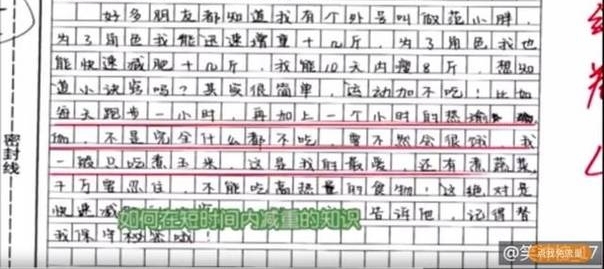 好多朋友都知道我有个外号叫做范小胖，
为了角色我能迅速增重十几斤，为了角色我也
能快速减肥十几斤，我能10天内瘦8斤，想知
道小诀窍吗？其实很简单，运动加不吃！比如
每天跑步一小时，再加上一个小时的热瑜
伽，不是完全什么都不吃，要不然会很饿，我
一般只吃煮玉米，这是我的最爱，还有煮蔬菜，
千万要忍住，不能吃高热量的食物！这绝对是
快速减
告诉他，记得替
我保守秘密哦！
如何在短时间内减重的知识
密封线
@笑
点我免流量
7